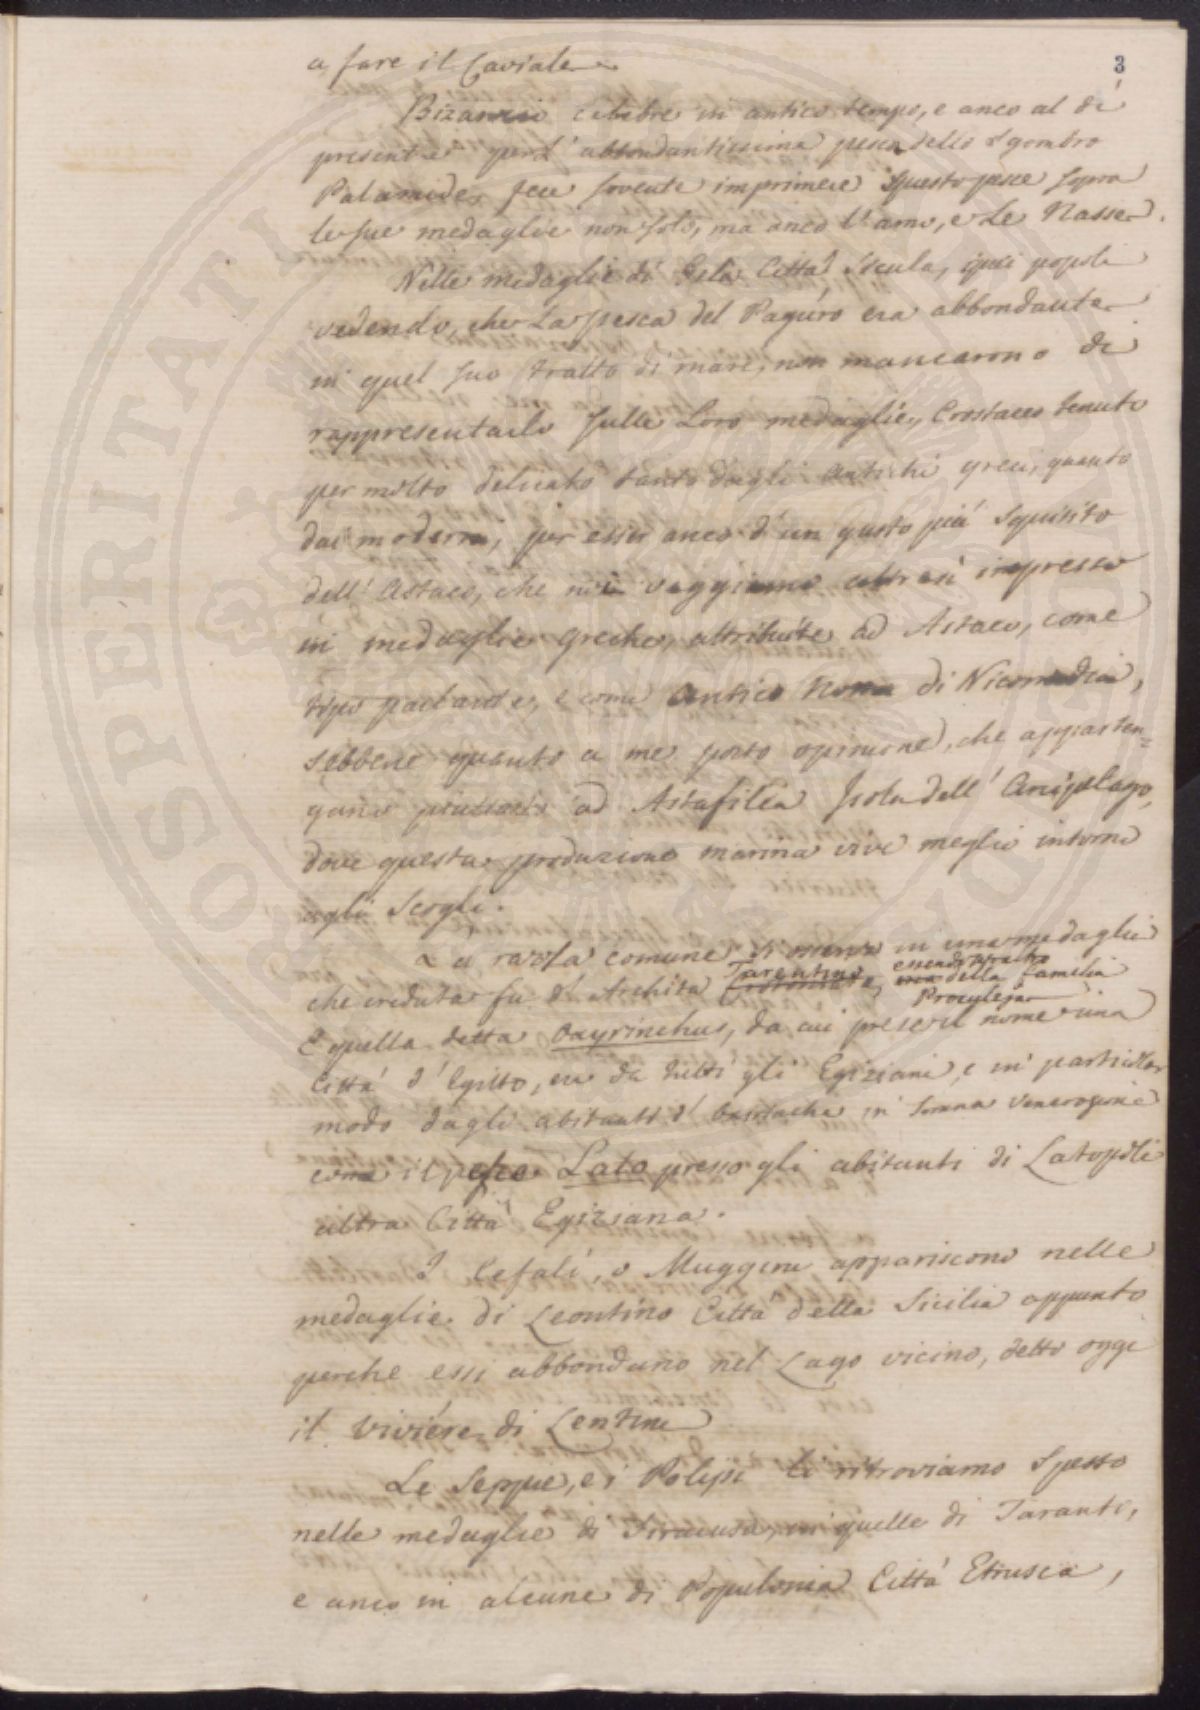 3
a fare il Caviale
Bizanzio celebre in antico tempo, e anco al dí
presente per l'abbondantissima pesca dello Sgombro
Palamide, fece sovente imprimere questo pesce sopra
le sue medaglie non solo, ma anco l'amo, e le Nasse.
Nelle medaglie di Gela Cittá Sicula, quei popoli
vedendo, che la pesca del Paguro era abbondante
in quel suo tratto di mare, non mancarono di
rappresentarlo sulle Loro medaglie, Crostaceo tenuto
per molto delicato tanto dagli antichi greci, quanto
dai moderni, per esser anco d'un gusto piú squisito
dell'Astaco, che noi veggiamo altresí impresso
in medaglie greche, attribuite ad Astaco, come
tipo parlante, e come antico Nome di Nicomedia,
sebbene quanto a me porto opinione, che apparten=
gano piuttosto ad Astafilea Isola dell'Arcipelago,
dove questa produzione marina vive meglio intorno
agli Scogli.
La razza comune si osserva in una medaglia
che creduta fu d'Archita Tarentino, essendo peraltro della Familia
Proculeja
E quella detta Oxyrinchus, da cui prese il nome una
Cittá d'Egitto, era da tutti gli Egiziani, e in particolar
modo dagli abitanti d' in somma venerazione
come il pesce Lato presso gli abitanti di Latopoli
altra Cittá Egiziana.
I Cefali, o Muggini appariscono nelle
medaglie di Leontino Cittá della Sicilia appunto
perche essi abbondano nel Lago vicino, detto oggi
il Viviére di Lentini
Le Seppie, e i Polipi li ritroviamo spesso
nelle medaglie di Siracusa, in quelle di Taranto,
e anco in alcune di Populonia Cittá Etrusca,
SOSPERITATI